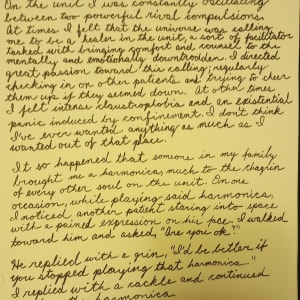 On the unit I was constantly oscillating
between two powerful rival compulsions.
At times I felt that the universe was calling
me to be a healer in the unit, a sort of facilitator
tasked with bringing comfort and counsel to the
mentally and emotionally downtrodden. I directed
great passion toward this calling; regularly
checking in on other patients and trying to cheer
them up if they seemed down. At other times
I felt intense claustrophobia and an existential
panic induced by confinement. I don't think
I've ever wanted anything as much as I
wanted out of that place.
It so happened that someone in my family
brought me a harmonica, much to the chagrin
of every other soul on the unit. On one
occasion, while playing said harmonica,
I noticed another patient staring into space
with a pained expression on his face. I walked
toward him and asked, "Are you ok?"
He replied with a grin, "I'd be better if
you stopped playing that harmonica."
I replied with a cackle and continued
the harmonica